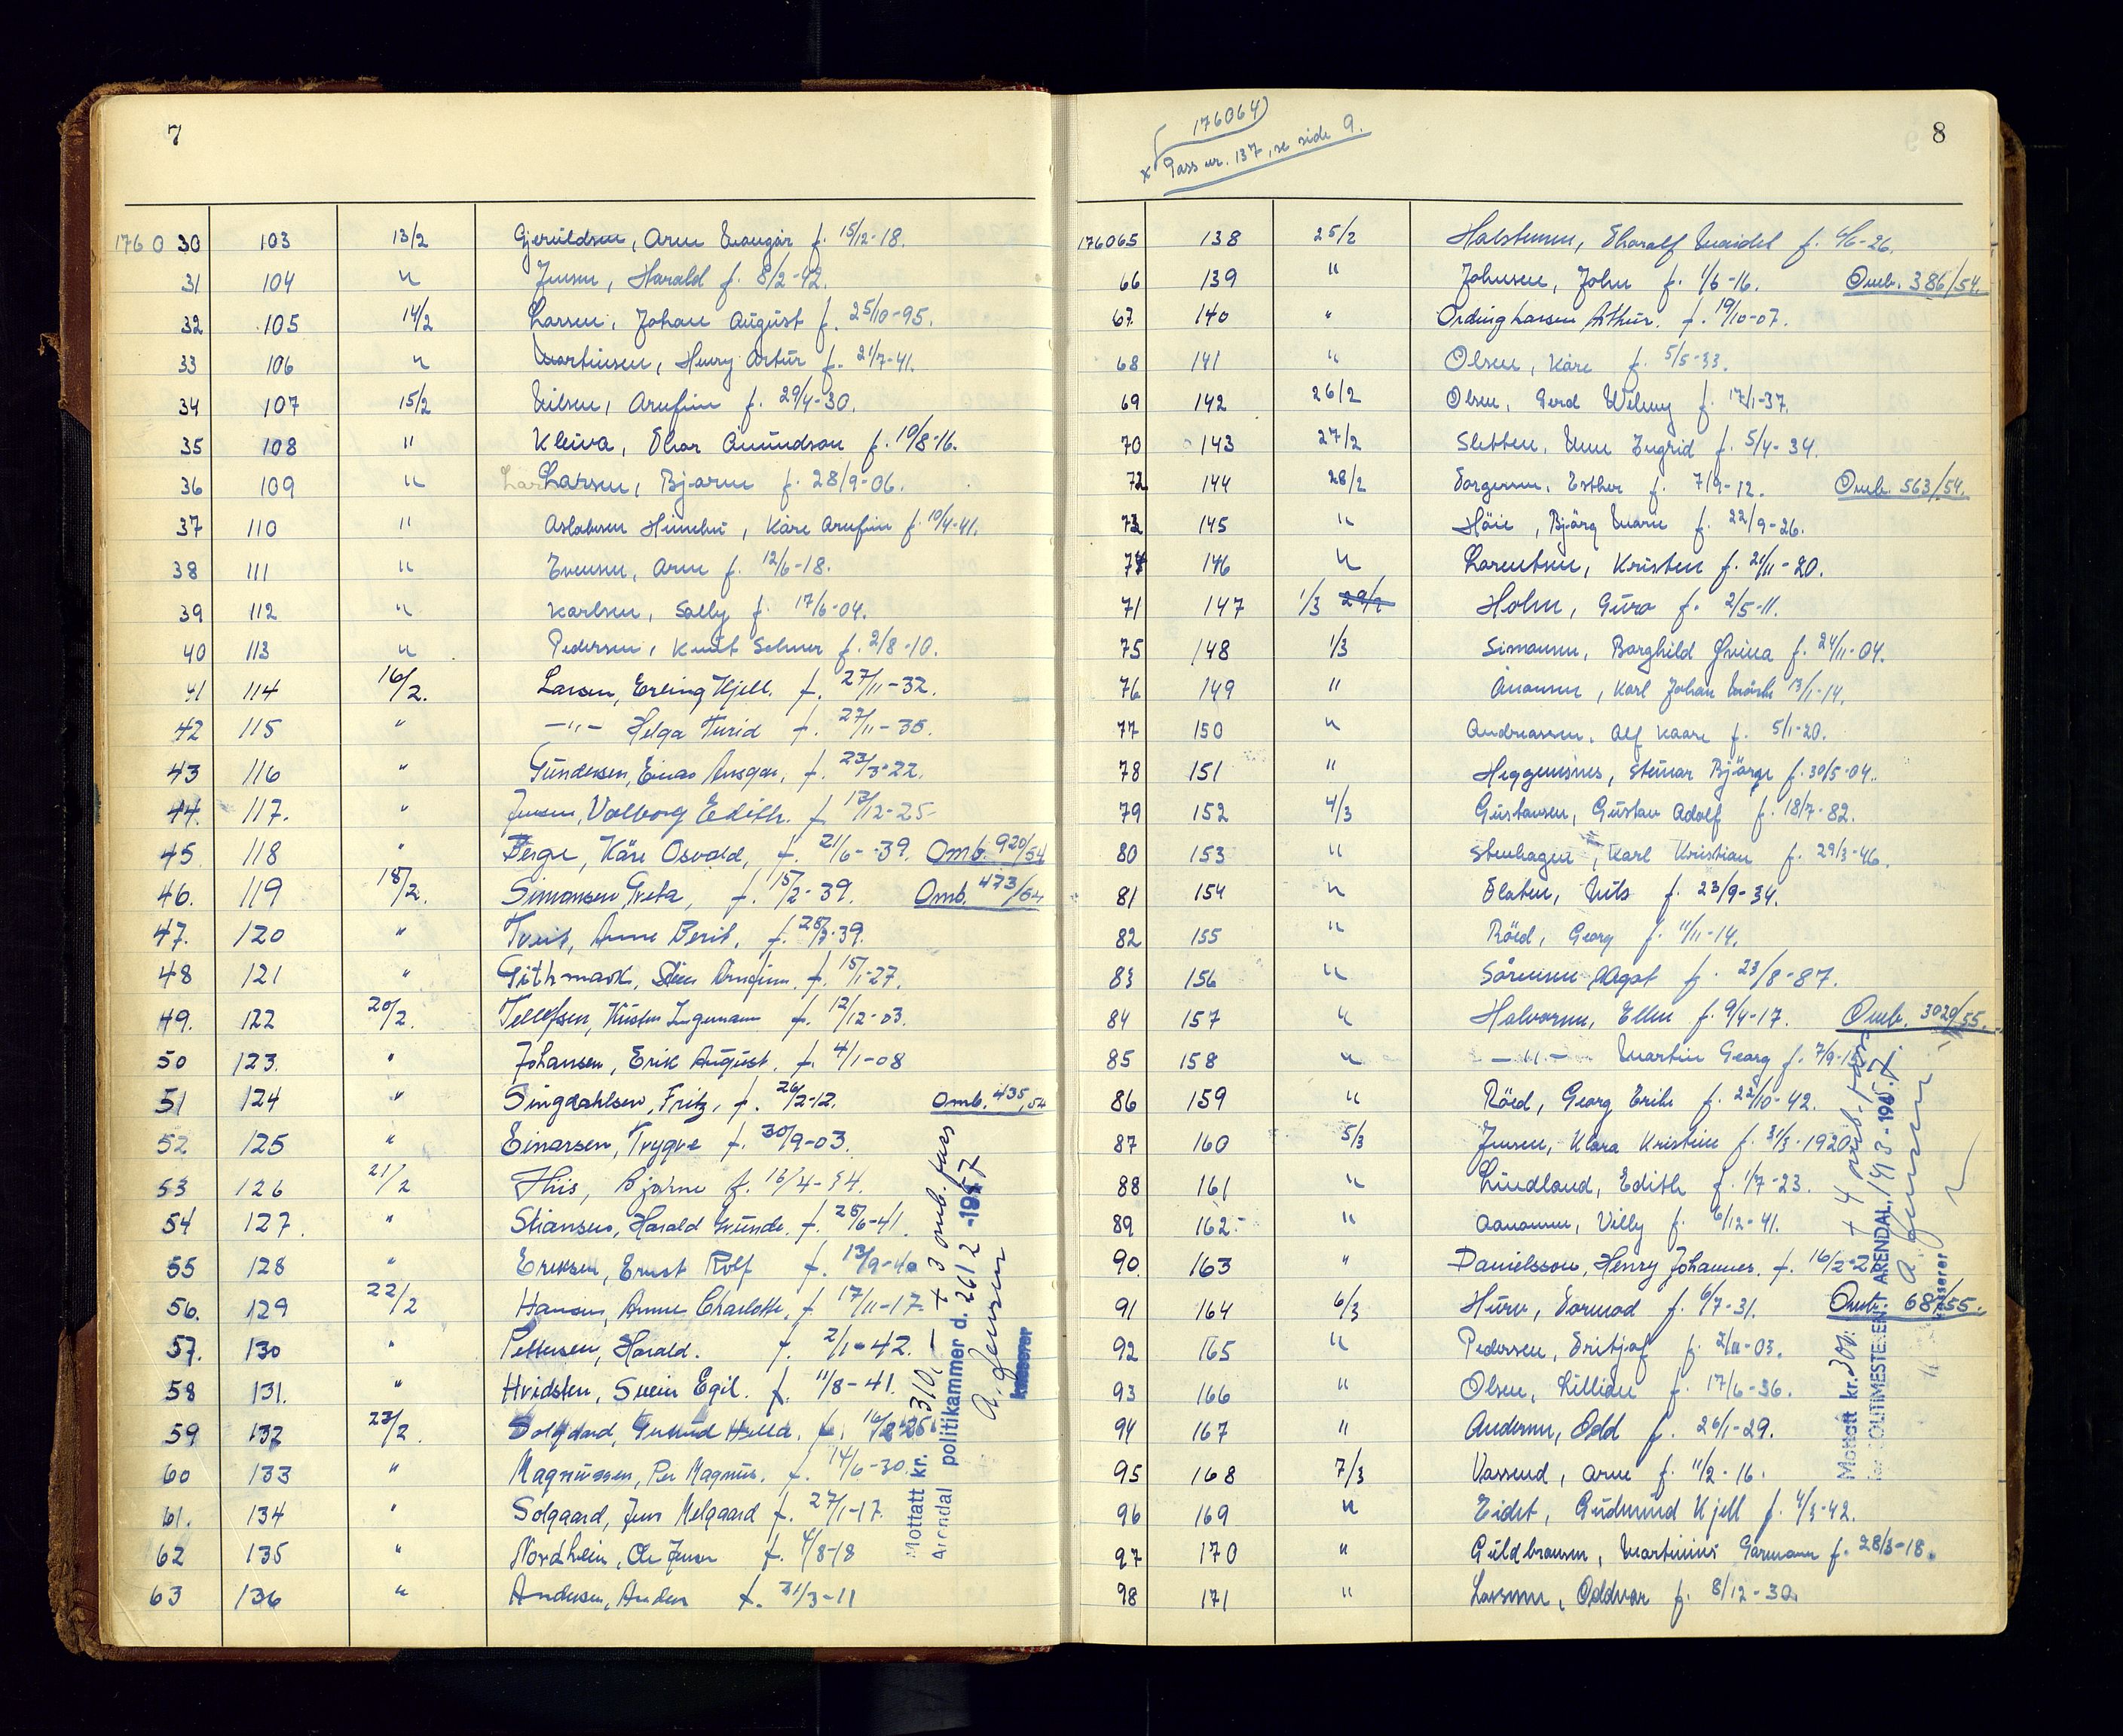 7
176030 103 13/2 Gjeruldsen, Arne f. 15/12-18.
31 104 " Jensen, Harald f. 8/2-42.
32 105 14/2 Larsen, Johan August f. 25/10-95.
33 106 " Martinsen, Henry Artur f. 21/7-41.
34 107 15/2 Nilsen, Arnfinn f. 29/4-30.
35 108 " Kleiva, Amundson f. 10/8-16.
36 109 " Larsen, Bjarne f. 28/9-06.
37 110 " Aslaksen Kåre Arnfinn f. 10/4-41.
38 111 " Evensen, Arne f. 12/6-18.
39 112 " Karlsen, Solly f. 17/6-04.
40 113 " Pedersen, Knut Selmer f. 2/8-10.
41 114 16/2. Larsen, Erling Kjell. f. 27/11-32.
42 115 " -"- Helga Turid f. 27/11-35.
43 116 " Gundersen, Einar Ansgar, f. 23/3-22.
44. 117. " Jensen, Valborg Edith. f. 13/12-25
45. 118 " Berge, Kåre Osvald, f. 21/6-39. Omb. 920/54
46. 119 18/2. Simonsen, Greta, f. 15/2-39. Omb. 473/54
47. 120 " Tveit, Anne Berit. f. 28/7-39.
48 121 " Githmark, Arnfinn. f. 15/1-27.
49. 122 20/2. Tellefsen, Kristen Ingemann f. 12/12-03.
50 123. " Johansen, Erik August. f. 4/1-08
51 124 " Singdahlsen, Fritz, f. 26/2-12. Omb. 435/54
52 125 " Einarsen, Trygve f. 30/9-03.
53 126 21/2 His, Bjarne f. 16/4-14.
54 127. " Stiansen, Harald f. 28/6-41.
55 128 " Eriksen, Ernst Rolf f. 13/9-40
56. 129 22/2 Hansen, Anne Charlotte, f. 17/11-17.
57. 130 " Pettersen, Harald. f. 2/1-42.
58 131. " Hvidsten, Svein Egil. f. 11/8-41.
59 132 23/2. Solgaard, f.
60 133 " Magnussen, Per Magnus. f. 14/6-30.
61. 134 " Solgaard, Jens Melgaard f. 27/1-17.
62 135 " Nordhein, Ole Jensen f. 4/8-18
63 136 " Andersen, Anders f. 31/3-11
Mottatt kr. 310,- + 3 omb. pass
Arendal politikammer d. 26/2-1957
A. Jensen
kasserer
176064
x Pass nr. 137, se side 9.
8
176065 138 25/2 Halstensen, Tharalf f. 6/6-26.
66 139 " Johnsen, John f. 1/6-16. Omb. 386/54.
67 140 " Ording Larsen Arthur. f. 19/10-07.
68 141 " Olsen, Kåre f. 5/5-33.
69 142 26/2 Olsen, Gerd Wilmy f. 17/1-37.
70 143 27/2 Sletten, Unn Ingrid f. 5/4-34.
72 144 28/2 Torgersen, Esther f. 7/9-12. Omb. 563/54.
73 145 " Höie, Bjärg Marie f. 22/9-26.
74 146 " Larentsen, Kristen f. 21/11-20.
71 147 1/3 29/2 Holm, Guro f. 2/5-11.
75 148 1/3 Simonsen, Borghild f. 24/11-04.
76 149 " Karl Johan 13/1-14.
77 150 " Andreassen, Alf Kaare f. 5/1-20.
78 151 " Heggemsnes, Steinar Bjärge f. 30/5-04.
79 152 4/3 Gustavsen, Gustav Adolf f. 18/7-82.
80 153 " Stenhagen, Karl Kristian f. 29/3-46.
81 154 " Flaten, Nils f. 23/9-34.
82 155 " Röed, Georg f. 11/11-14.
83 156 " Sörensen Agot f. 23/8-87.
84 157 " Halvorsen, Ellen f. 9/4-17. Omb. 3020/55.
85 158 " -"- Martin Georg f. 7/9-15
86 159 " Röed, Georg Erik f. 22/10-42.
87 160 5/3 Jensen, Klara Kristine f. 31/3-1920
88 161 " Lindland, Edith f. 1/7-23.
89 162.- " Aanonsen, Villy f. 6/12-41.
90 163 " Danielsson, Henry Johannes. f. 16/2-21
91 164 6/3 Hurv, Tormod f. 6/7-31. Omb. 687/55.
92 165 " Pedersen, Fritjof f. 2/11-03.
93 166 " Olsen, Lillian f. 17/6-36.
94 167 " Andersen, Odd f. 26/1-29.
95 168 7/3 Vassend, Arne f. 11/2-16.
96 169 " Eidet, Gudmund Kjell f. 4/3-42.
97 170 " Guldbransen, Martinius Garmann f. 28/3-18.
98 171 " Larsen, Oddvar f. 8/12-30.
Mottatt kr. 300. + 4 omb. pass
for POLITIMESTEREN I ARENDAL, 14/3-1957.
A. Jensen
kasserer